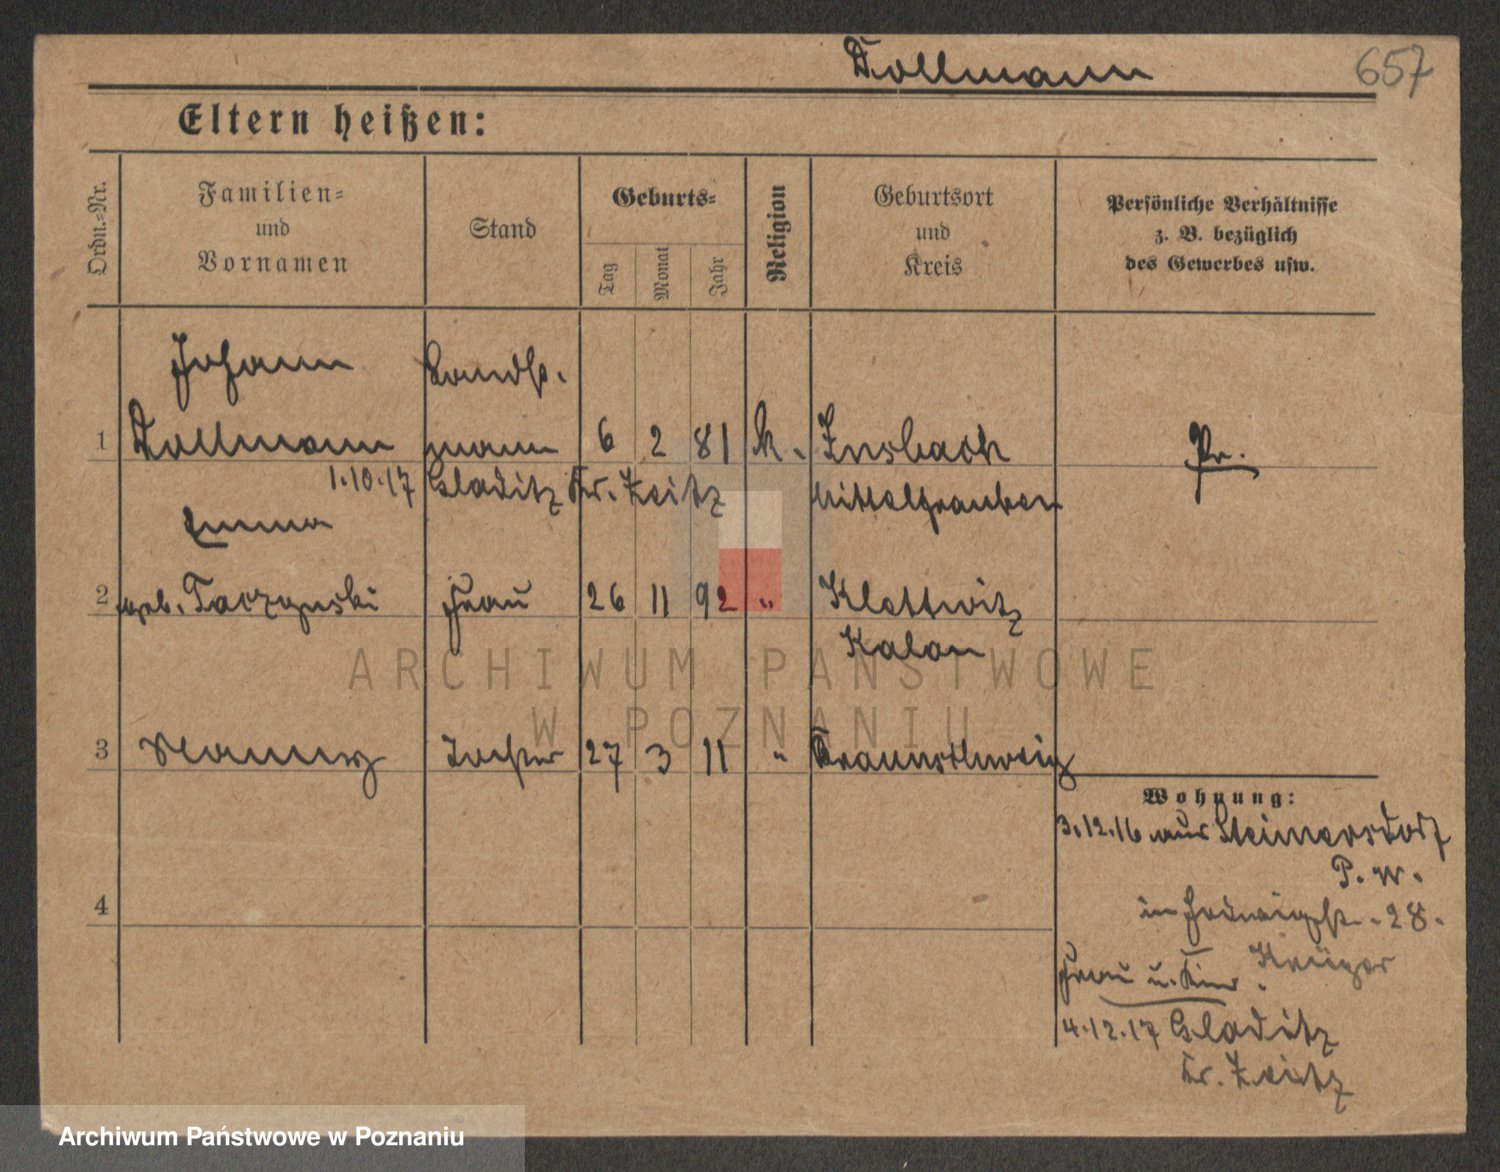 Dollmann 657
Eltern heißen:
Ordn.-Nr.
Familien-
und
Vornamen
Stand
Geburts-
Tag
Monat
Jahr
Religion
Geburtsort
und
Kreis
Persönliche Verhältnisse
z. B. bezüglich
des Gewerbes usw.
Johann
Dollmann
Landst.
mann
1 6 2 81 k. Insbach
Pr.
1.10.17 Gladitz Kr. Zeitz
Emma
2 geb. Frau 26 11 92 " Klettwitz
Kalau
3 Tochter 27 3 11 " Braunschweig
Wohnung:
3.12.16 aus Steimersdorf
P. W.
in Hedwigstr. 28.
Krüger
Frau u. Kind
4.12.17 Gladitz
Kr. Zeitz
4
ARCHIWUM PAŃSTWOWE
W POZNANIU
Archiwum Państwowe w Poznaniu